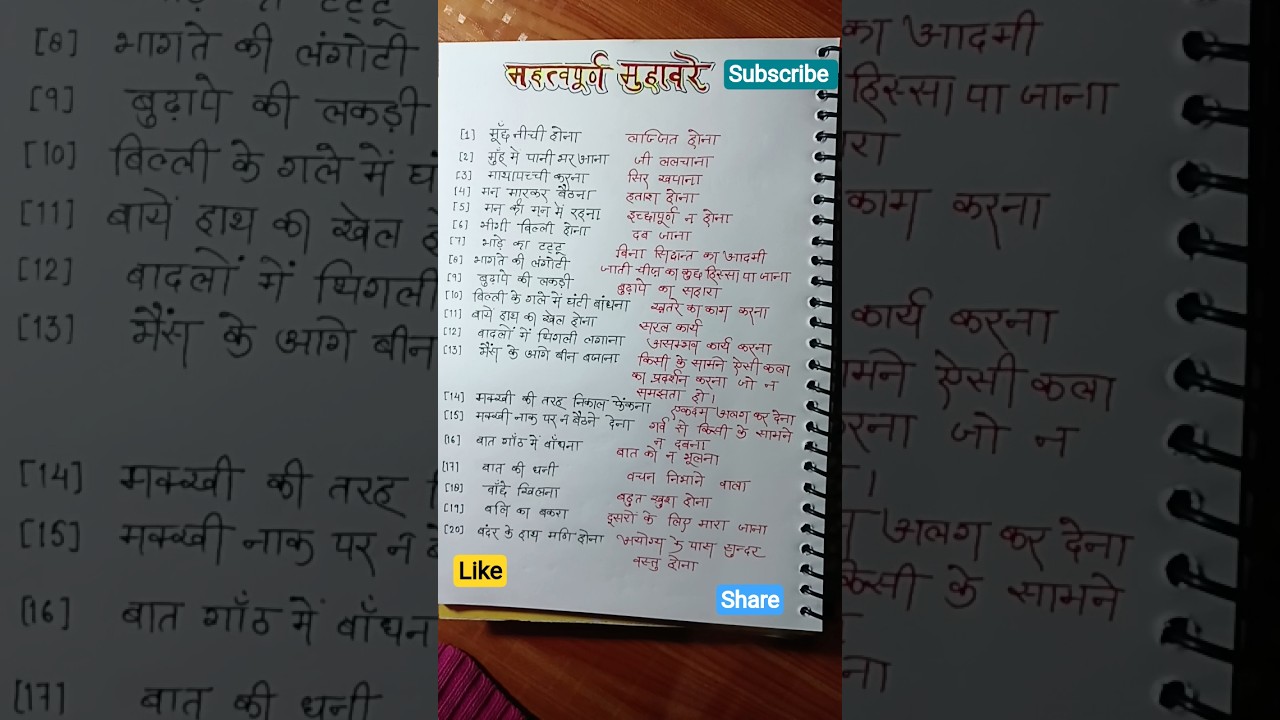 महत्वपूर्ण मुहावरे
Subscribe
[1] मूँछ नीची होना लज्जित होना
[2] मुँह में पानी भर आना जी ललचाना
[3] माथापच्ची करना सिर खपाना
[4] मन मारकर बैठना हताश होना
[5] मन की मन में रहना इच्छापूर्ण न होना
[6] भीगी बिल्ली होना दब जाना
[7] भाड़े का टट्टू बिना सिद्धान्त का आदमी
[8] भागते की लंगोटी जाती चीज का कुछ हिस्सा पा जाना
[9] बुढ़ापे की लकड़ी बुढ़ापे का सहारा
[10] बिल्ली के गले में घंटी बांधना खतरे का काम करना
[11] बायें हाथ की खेल होना सरल कार्य
[12] बादलों में थिगली लगाना असम्भव कार्य करना
[13] भैंस के आगे बीन बजाना किसी के सामने ऐसी कला
का प्रदर्शन करना जो न
समझता हो।
[14] मक्खी की तरह निकाल फेंकना एकदम अलग कर देना
[15] मक्खी नाक पर न बैठने देना गर्व से किसी के सामने
न दबना
[16] बात गाँठ में बाँधना बात को न भूलना
[17] बात की धनी वचन निभाने वाला
[18] बाँदे खिलना बहुत खुश होना
[19] बलि का बकरा दूसरों के लिए मारा जाना
[20] बंदर के हाथ मणि होना अयोग्य के पास सुन्दर
वस्तु होना
Like
Share
[8] भागते की लंगोटी
[9] बुढ़ापे की लकड़ी
[10] बिल्ली के गले में
[11] बायें हाथ की खेल
[12] बादलों में थिगली
[13] भैंस के आगे बीन
[14] मक्खी की तरह
[15] मक्खी नाक पर न
[16] बात गाँठ में बाँधन
[17] बात की धनी
का आदमी
हिस्सा पा जाना
काम करना
कार्य करना
ऐसी कला
जो न
अलग कर देना
किसी के सामने